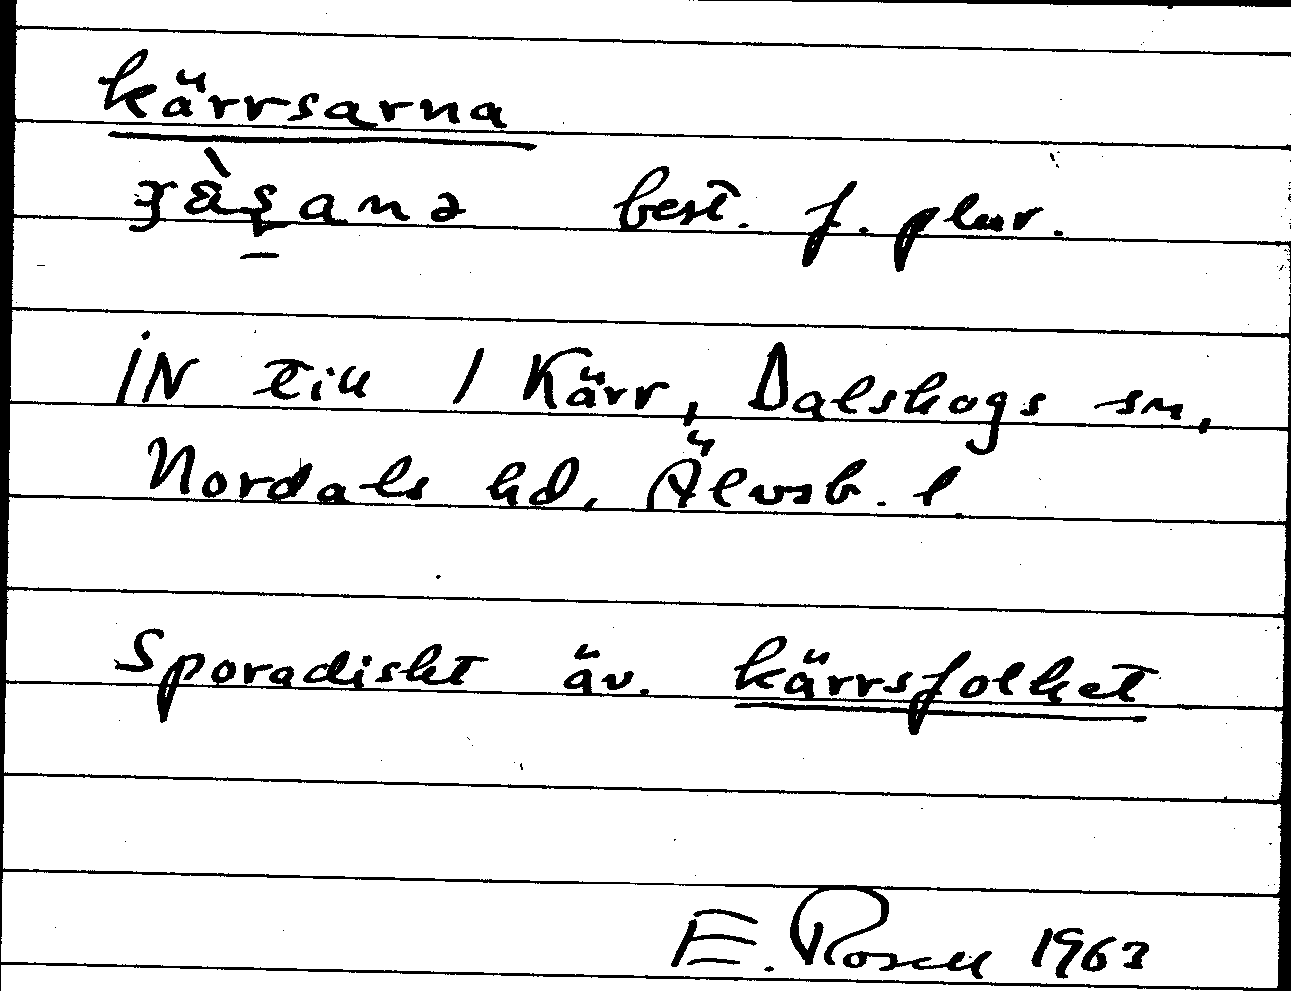 kärrsarna
best. f. plur.
IN till 1 Kärr, Dalskogs sn,
Nordals hd, Älvsb. l.
Sporadiskt äv. kärrsfolket
E. Rosell 1963